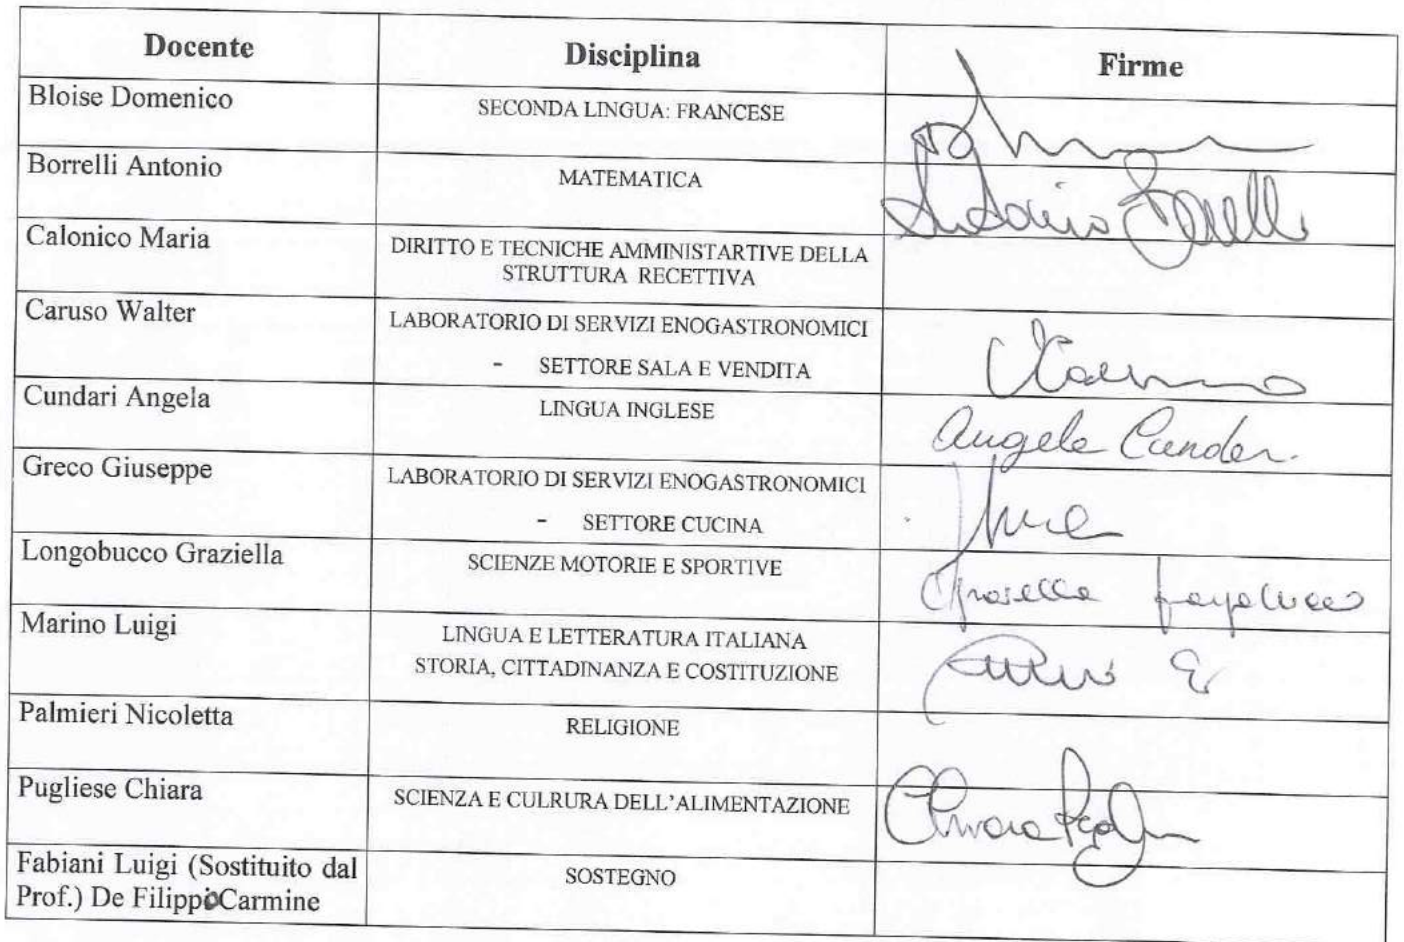 Docente Disciplina Firme
Bloise Domenico SECONDA LINGUA: FRANCESE
Borrelli Antonio MATEMATICA Antonio Borrelli
Calonico Maria DIRITTO E TECNICHE AMMINISTARTIVE DELLA
STRUTTURA RECETTIVA
Caruso Walter LABORATORIO DI SERVIZI ENOGASTRONOMICI
- SETTORE SALA E VENDITA
Cundari Angela LINGUA INGLESE Angela
Greco Giuseppe LABORATORIO DI SERVIZI ENOGASTRONOMICI
- SETTORE CUCINA
Longobucco Graziella SCIENZE MOTORIE E SPORTIVE
Marino Luigi LINGUA E LETTERATURA ITALIANA
STORIA, CITTADINANZA E COSTITUZIONE
Palmieri Nicoletta RELIGIONE
Pugliese Chiara SCIENZA E CULRURA DELL'ALIMENTAZIONE Chiara
Fabiani Luigi (Sostituito dal SOSTEGNO
Prof.) De Filippo Carmine